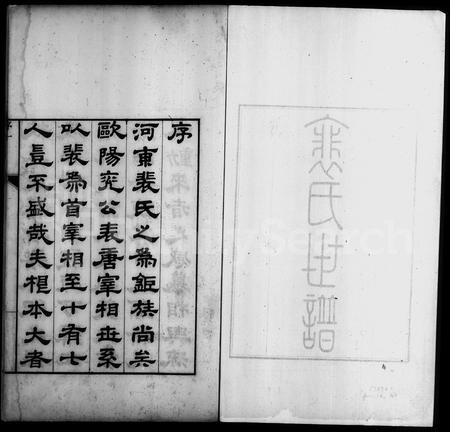 裴氏世譜
序
河東裴氏之為鉅族尚矣
歐陽兗公表唐宰相世系
以裴為首宰相至十有七
人豈不盛哉夫根本大者